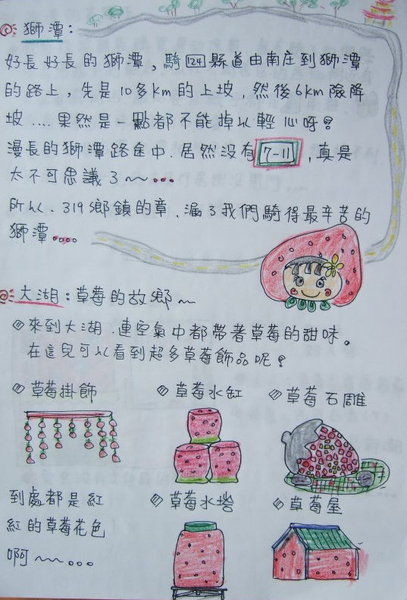 獅潭：
好長好長的獅潭，騎124縣道由南庄到獅潭
的路上，先是10多km的上坡，然後6km險降
坡....果然是一點都不能掉以輕心呀！
漫長的獅潭路途中．居然沒有7-11，真是
太不可思議了～...
所以．319鄉鎮的章．漏了我們騎得最辛苦的
獅潭....
大湖：草莓的故鄉～
來到大湖．連空氣中都帶著草莓的甜味。
在這兒可以看到超多草莓飾品呢！
草莓掛飾
草莓水缸
草莓石雕
到處都是紅
紅的草莓花色
啊～...
草莓水塔
草莓屋